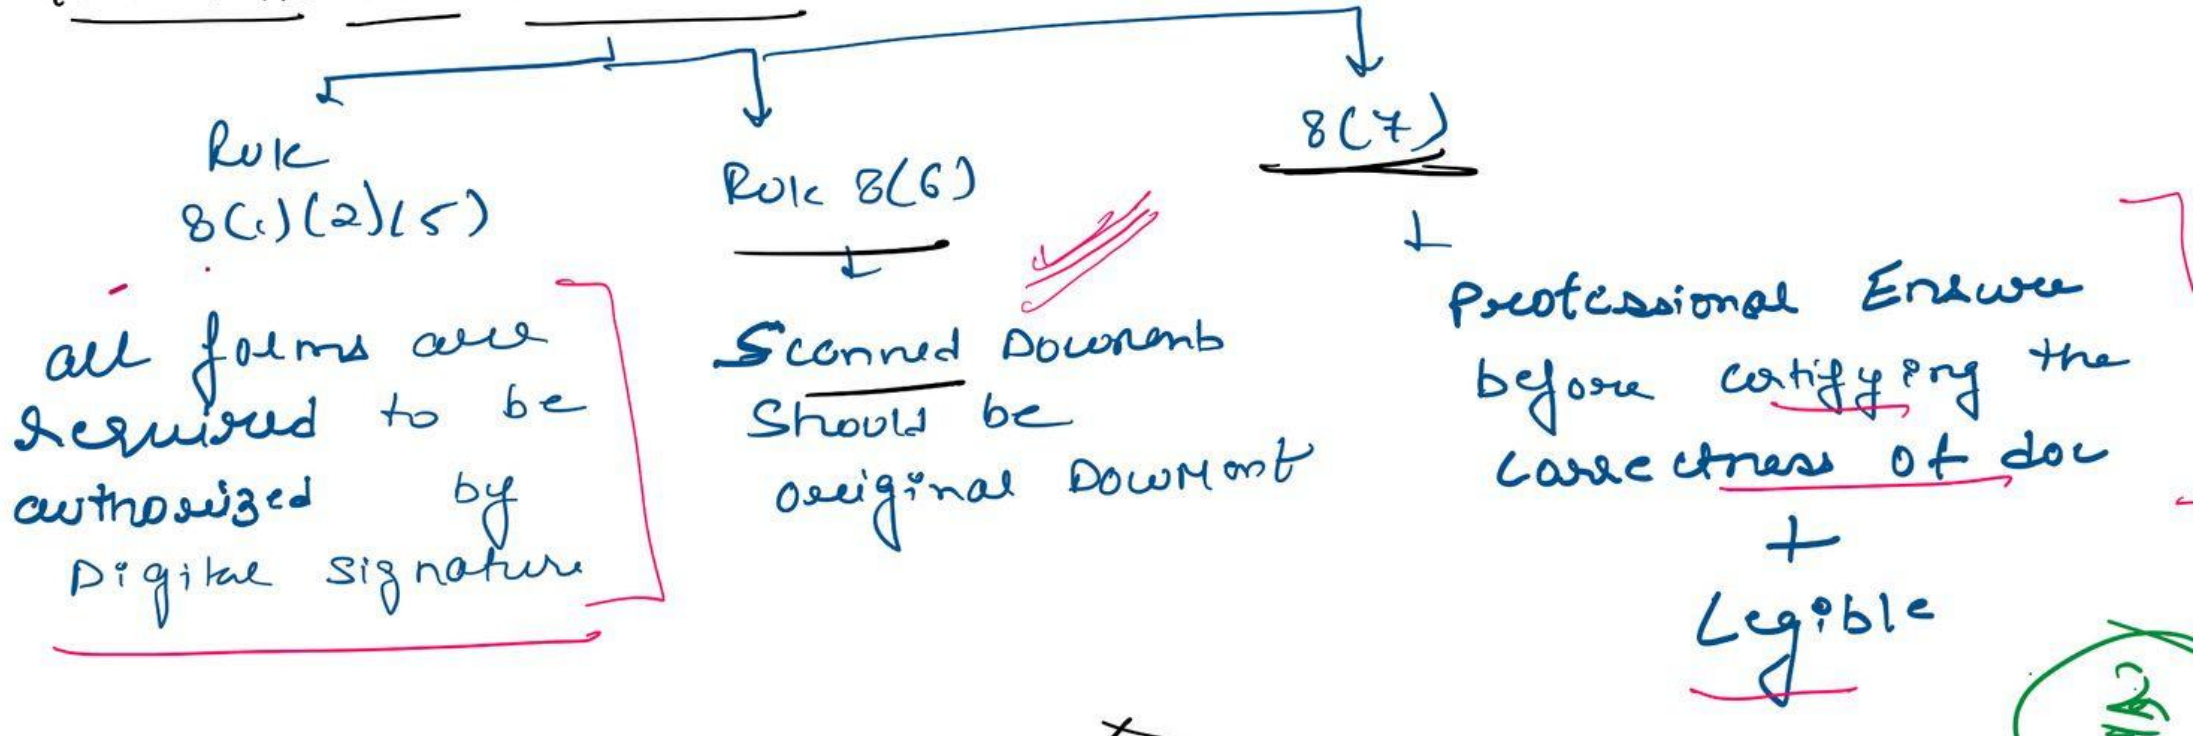 Rule
8(1)(2)(5)
all forms are
required to be
authorized by
Digital signature
Rule 8(6)
Scanned Document
Should be
original Document
8(7)
Professional Ensure
before certifying the
correctness of doc
+
Legible